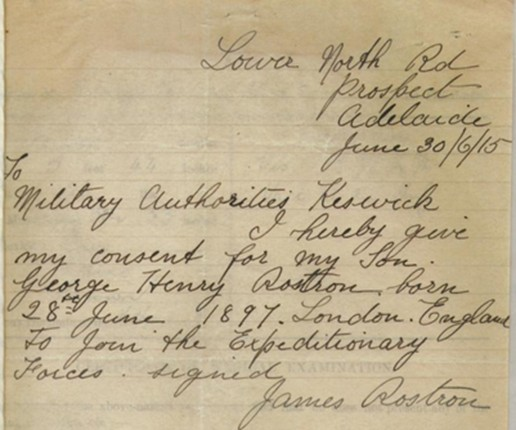 Lower North Rd
Prospect
Adelaide
June 30/6/15
To
Military Authorities Keswick
I hereby give
my consent for my Son.
George Henry Rostron born
28th June 1897. London. England
To Join the Expeditionary
Forces. signed
James Rostron
EXAMINATION